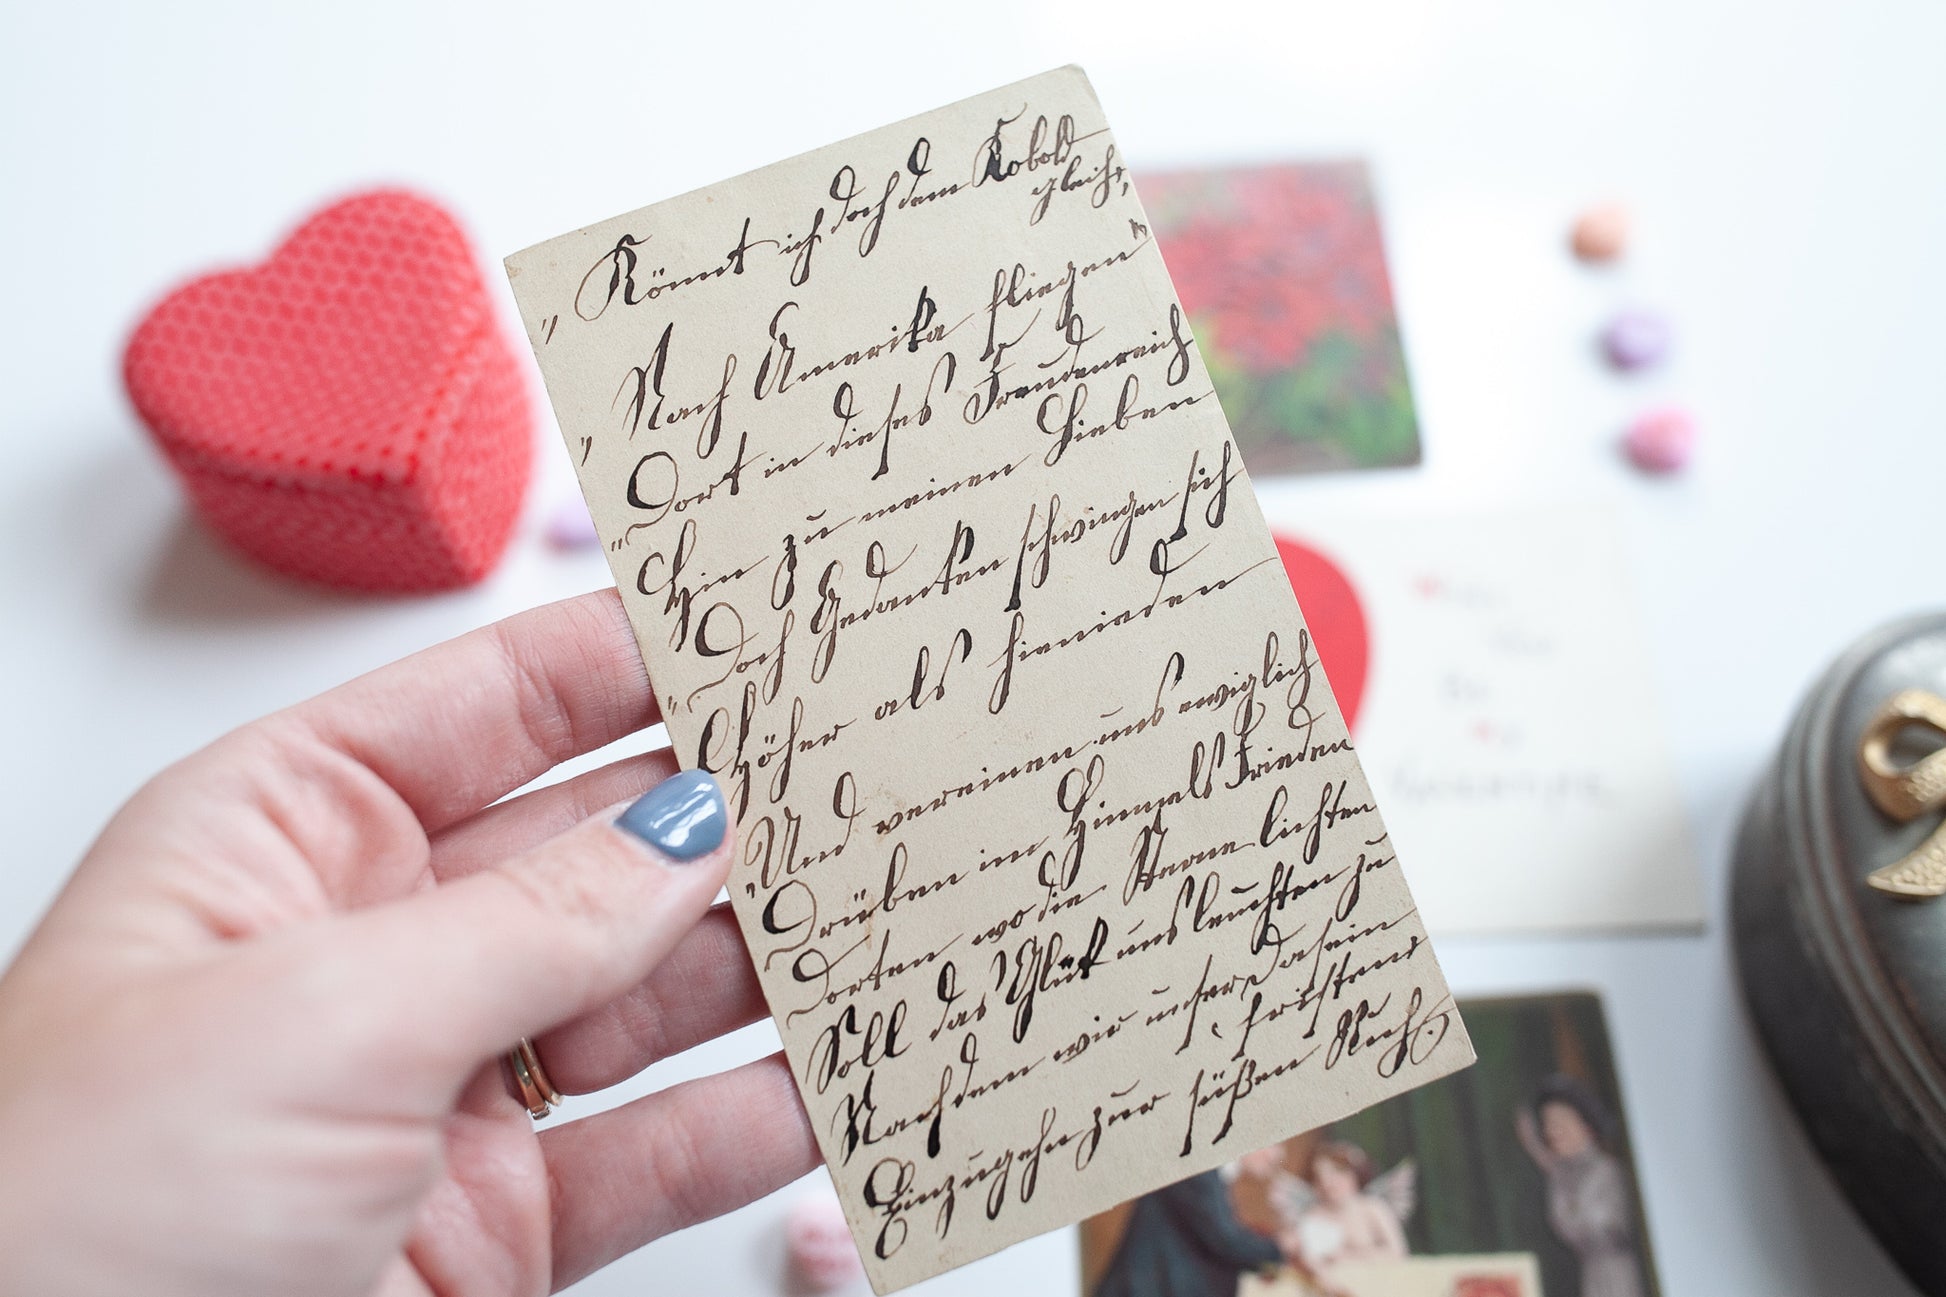 „Könnt ich doch dem Kobold
gleich,
„Nach Amerika fliegen
„Dort in dieses Freudenreich
Hin zu meinen Lieben
Doch Gedanken schwingen sich
Höher als hienieden
Und vereinen uns ewiglich
Drüben im Himmels Frieden
Dorten wo die Sterne lichten
Soll das Glück uns leuchten zu
Nachdem wir unser Dasein
fristen
Einzugehn zur süßen Ruh.